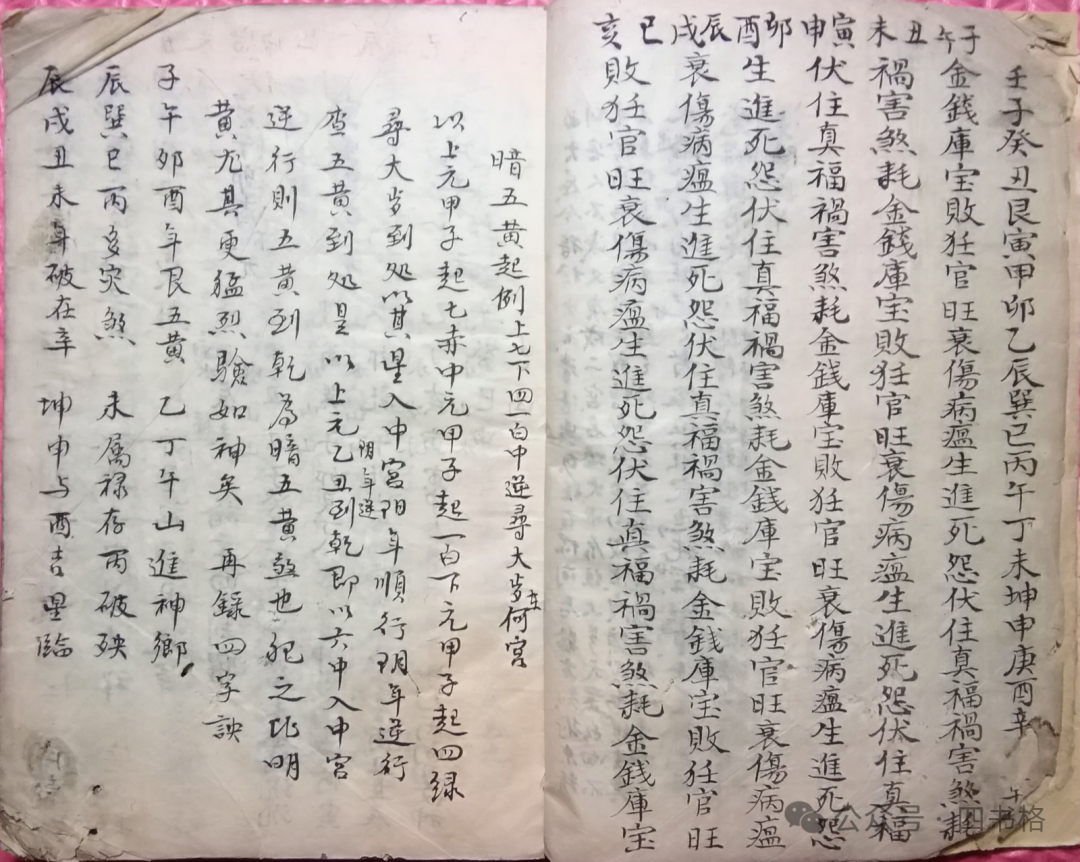 壬子癸丑艮寅甲卯乙辰巽巳丙午丁未坤申庚酉辛
子午金錢庫宝敗狂官旺衰傷病瘟生進死怨伏住真福禍害煞耗
丑未禍害煞耗金錢庫宝敗狂官旺衰傷病瘟生進死怨伏住真福
寅申伏住真福禍害煞耗金錢庫宝敗狂官旺衰傷病瘟生進死怨
卯酉生進死怨伏住真福禍害煞耗金錢庫宝敗狂官旺衰傷病瘟
辰戌衰傷病瘟生進死怨伏住真福禍害煞耗金錢庫宝敗狂官旺
巳亥敗狂官旺衰傷病瘟生進死怨伏住真福禍害煞耗金錢庫宝
暗五黄起例上七下四一白中逆尋大岁在何宮
以上元甲子起七赤中元甲子起一白下元甲子起四緑
尋大岁到处以其星入中宮阳年順行阴年逆行
查五黄到处是以上元乙丑到乾即以六中入中宮
阴年逆
逆行則五黄到乾為暗五黄煞也犯之比明
黄尤其更猛烈驗如神矣 再錄四字訣
子午卯酉年艮五黄 乙丁午山進神鄉
辰巽巳丙多灾煞 未属禄存丙破殃
辰戌丑未年破在辛 坤申与酉吉星臨
公众号·四书格